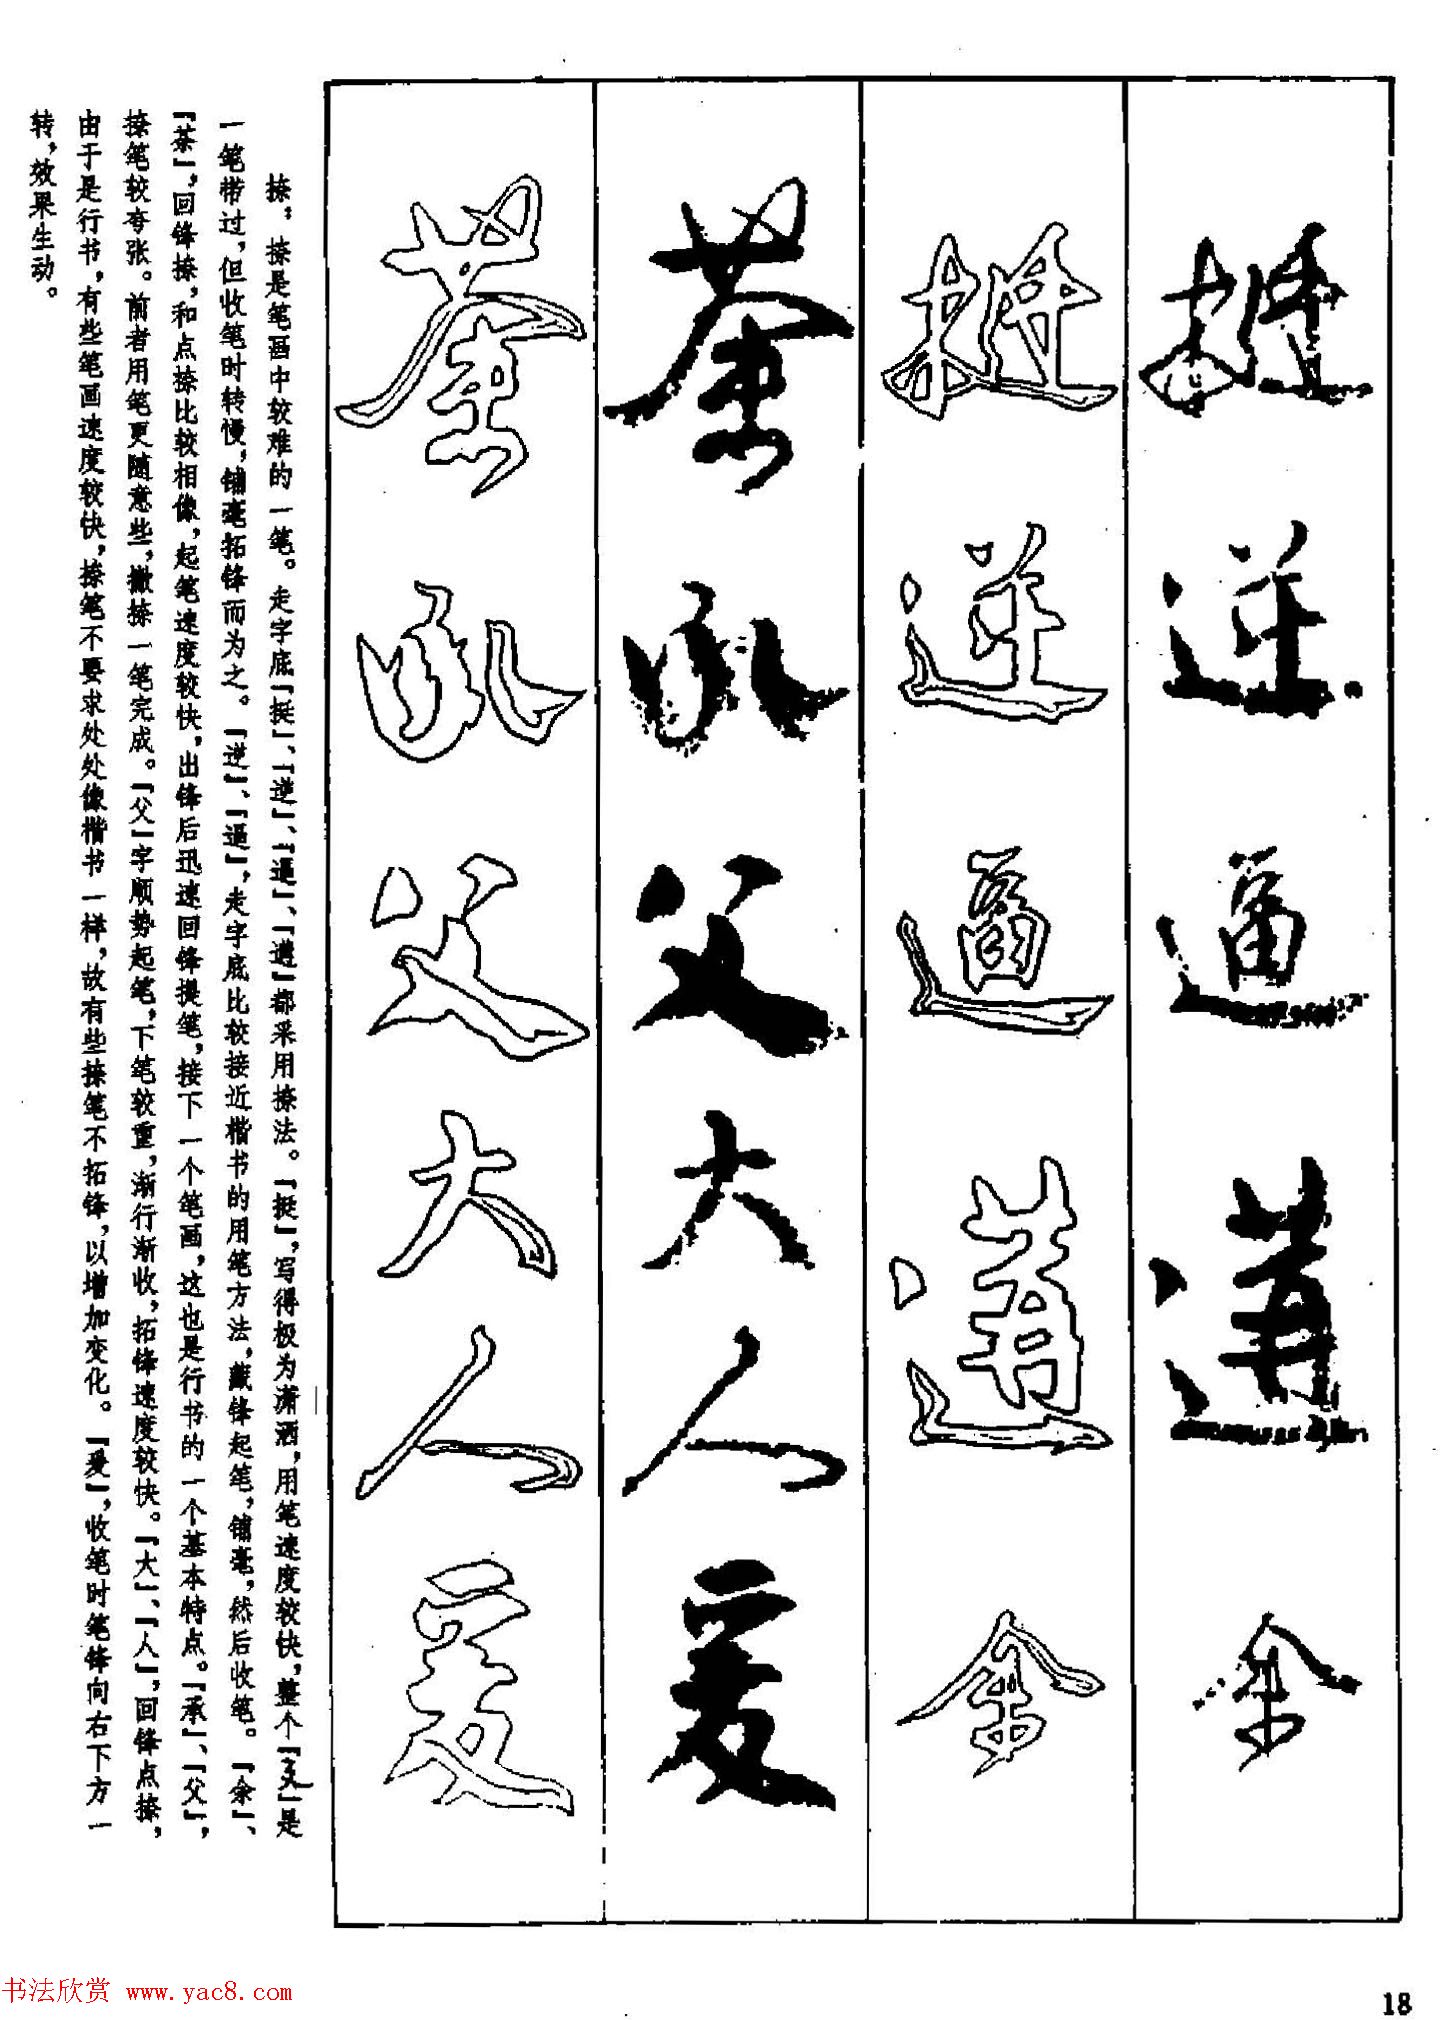 挺
逆
逼
遘
余
挺
逆
逼
遘
余
荼
承
父
大
人
爰
荼
承
父
大
人
爰
捺：捺是笔画中较难的一笔。走字底「挺」、「逆」、「逼」、「遘」都采用捺法。「挺」，写得极为潇洒，用笔速度较快，整个「廴」是
一笔带过，但收笔时转慢，铺毫拓锋而为之。「逆」、「逼」，走字底比较接近楷书的用笔方法，藏锋起笔，铺毫，然后收笔。「余」、
「荼」，回锋捺，和点捺比较相像，起笔速度较快，出锋后迅速回锋提笔，接下一个笔画，这也是行书的一个基本特点。「承」、「父」，
捺笔较夸张。前者用笔更随意些，撇捺一笔完成。「父」字顺势起笔，下笔较重，渐行渐收，拓锋速度较快。「大」、「人」，回锋点捺，
由于是行书，有些笔画速度较快，捺笔不要求处处像楷书一样，故有些捺笔不拓锋，以增加变化。「爰」，收笔时笔锋向右下方一
转，效果生动。
书法欣赏 www.yac8.com
18